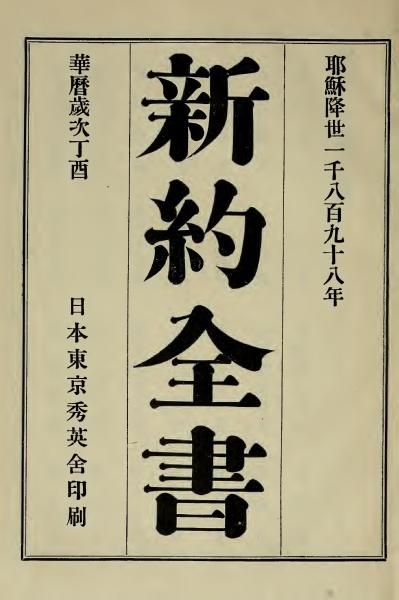 耶穌降世一千八百九十八年
新約全書
華曆歲次丁酉
日本東京秀英舍印刷